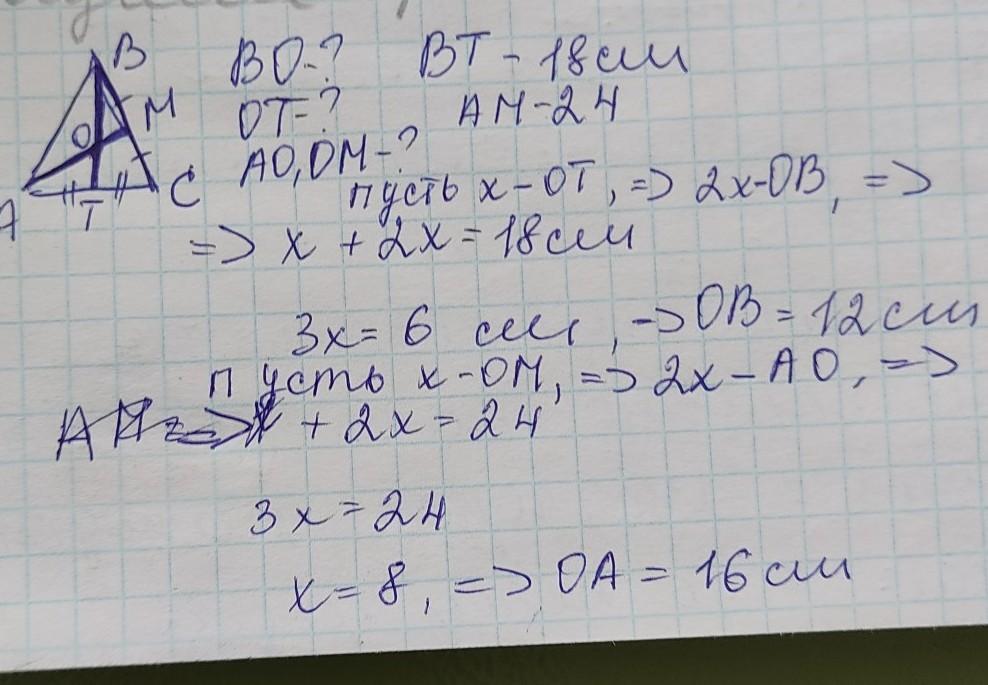 B
M
O
A
T
C
BO-? BT - 18 см
OT-? AM-24
AO, OM-?
пусть x-OT, => 2x-OB, =>
=> x + 2x = 18 см
3x = 6 см, -> OB = 12 см
пусть x-OM, => 2x - AO, =>
+ 2x = 24
3x = 24
x = 8, => OA = 16 см